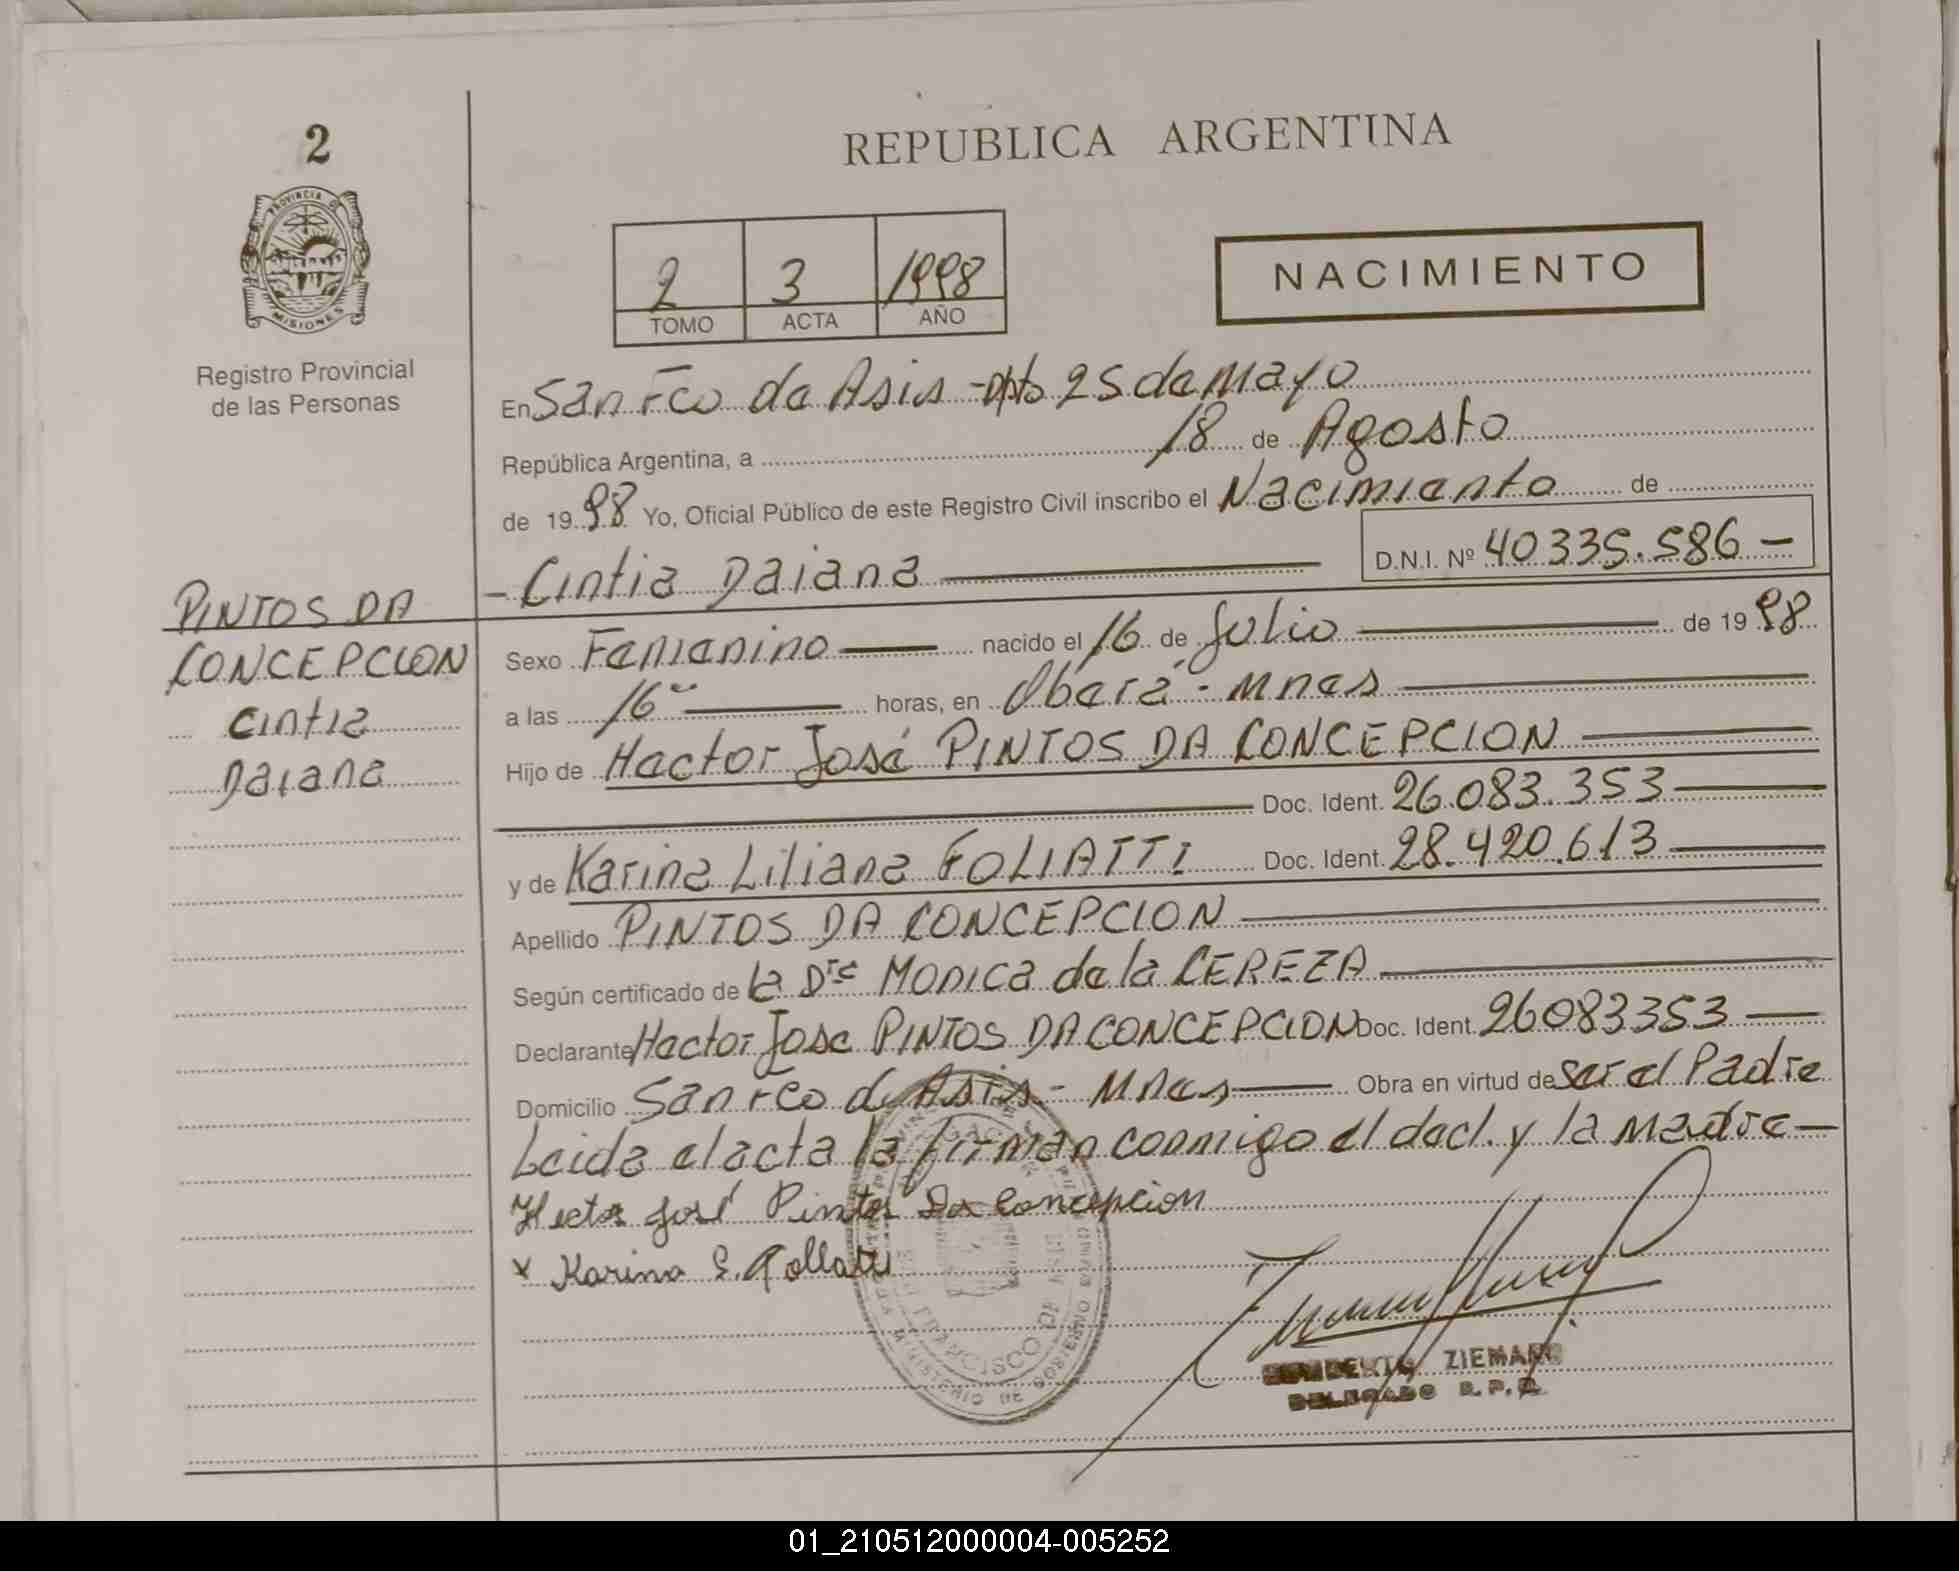 2
PROVINCIA DE
MISIONES
Registro Provincial
de las Personas
PINTOS DA
CONCEPCION
Cintia
Daiana
REPUBLICA ARGENTINA
2 3 1998
TOMO ACTA AÑO
NACIMIENTO
En San Fco de Asis - Dpto 25 de Mayo
República Argentina, a 18 de Agosto
de 1998 Yo, Oficial Público de este Registro Civil inscribo el Nacimiento de
- Cintia Daiana D.N.I. Nº 40335.586 -
Sexo Femenino nacido el 16 de Julio de 1998
a las 16 horas, en Oberá - Mnes
Hijo de Hector José PINTOS DA CONCEPCION
Doc. Ident. 26.083.353
y de Karina Liliana FOLIATTI Doc. Ident. 28.420.613
Apellido PINTOS DA CONCEPCION
Según certificado de la Dra MONICA de la CEREZA
Declarante Hector Jose PINTOS DA CONCEPCION Doc. Ident. 26083353
Domicilio San Fco de Asis - Mnes Obra en virtud de ser el Padre
Leida el acta la firman conmigo el decl. y la Madre -
Hector José Pintos Da Concepcion
x Karina
FRANCISCO DE
MINISTERIO DE GOBIERNO
ZIEMANN
DELEGADO R. P. P.
01_210512000004-005252